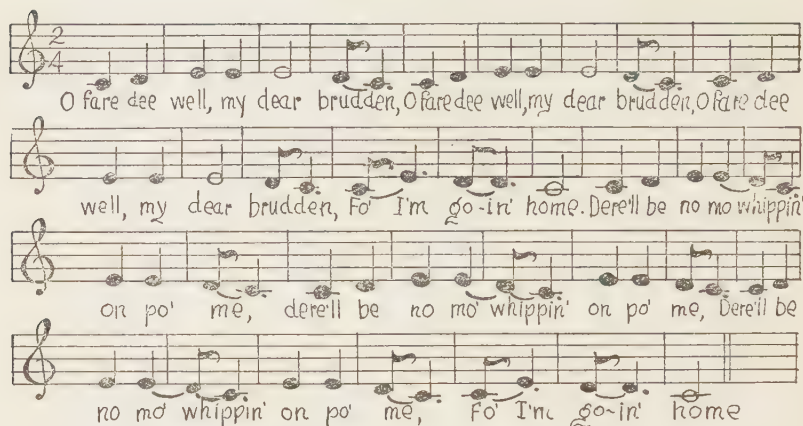 2
4
O fare dee well, my dear brudden, O fare dee well, my dear brudden, O fare dee
well, my dear brudden, Fo' I'm go-in' home. Dere'll be no mo whippin'
on po' me, dere'll be no mo' whippin' on po' me, Dere'll be
no mo' whippin' on po' me, Fo' I'm go-in' home